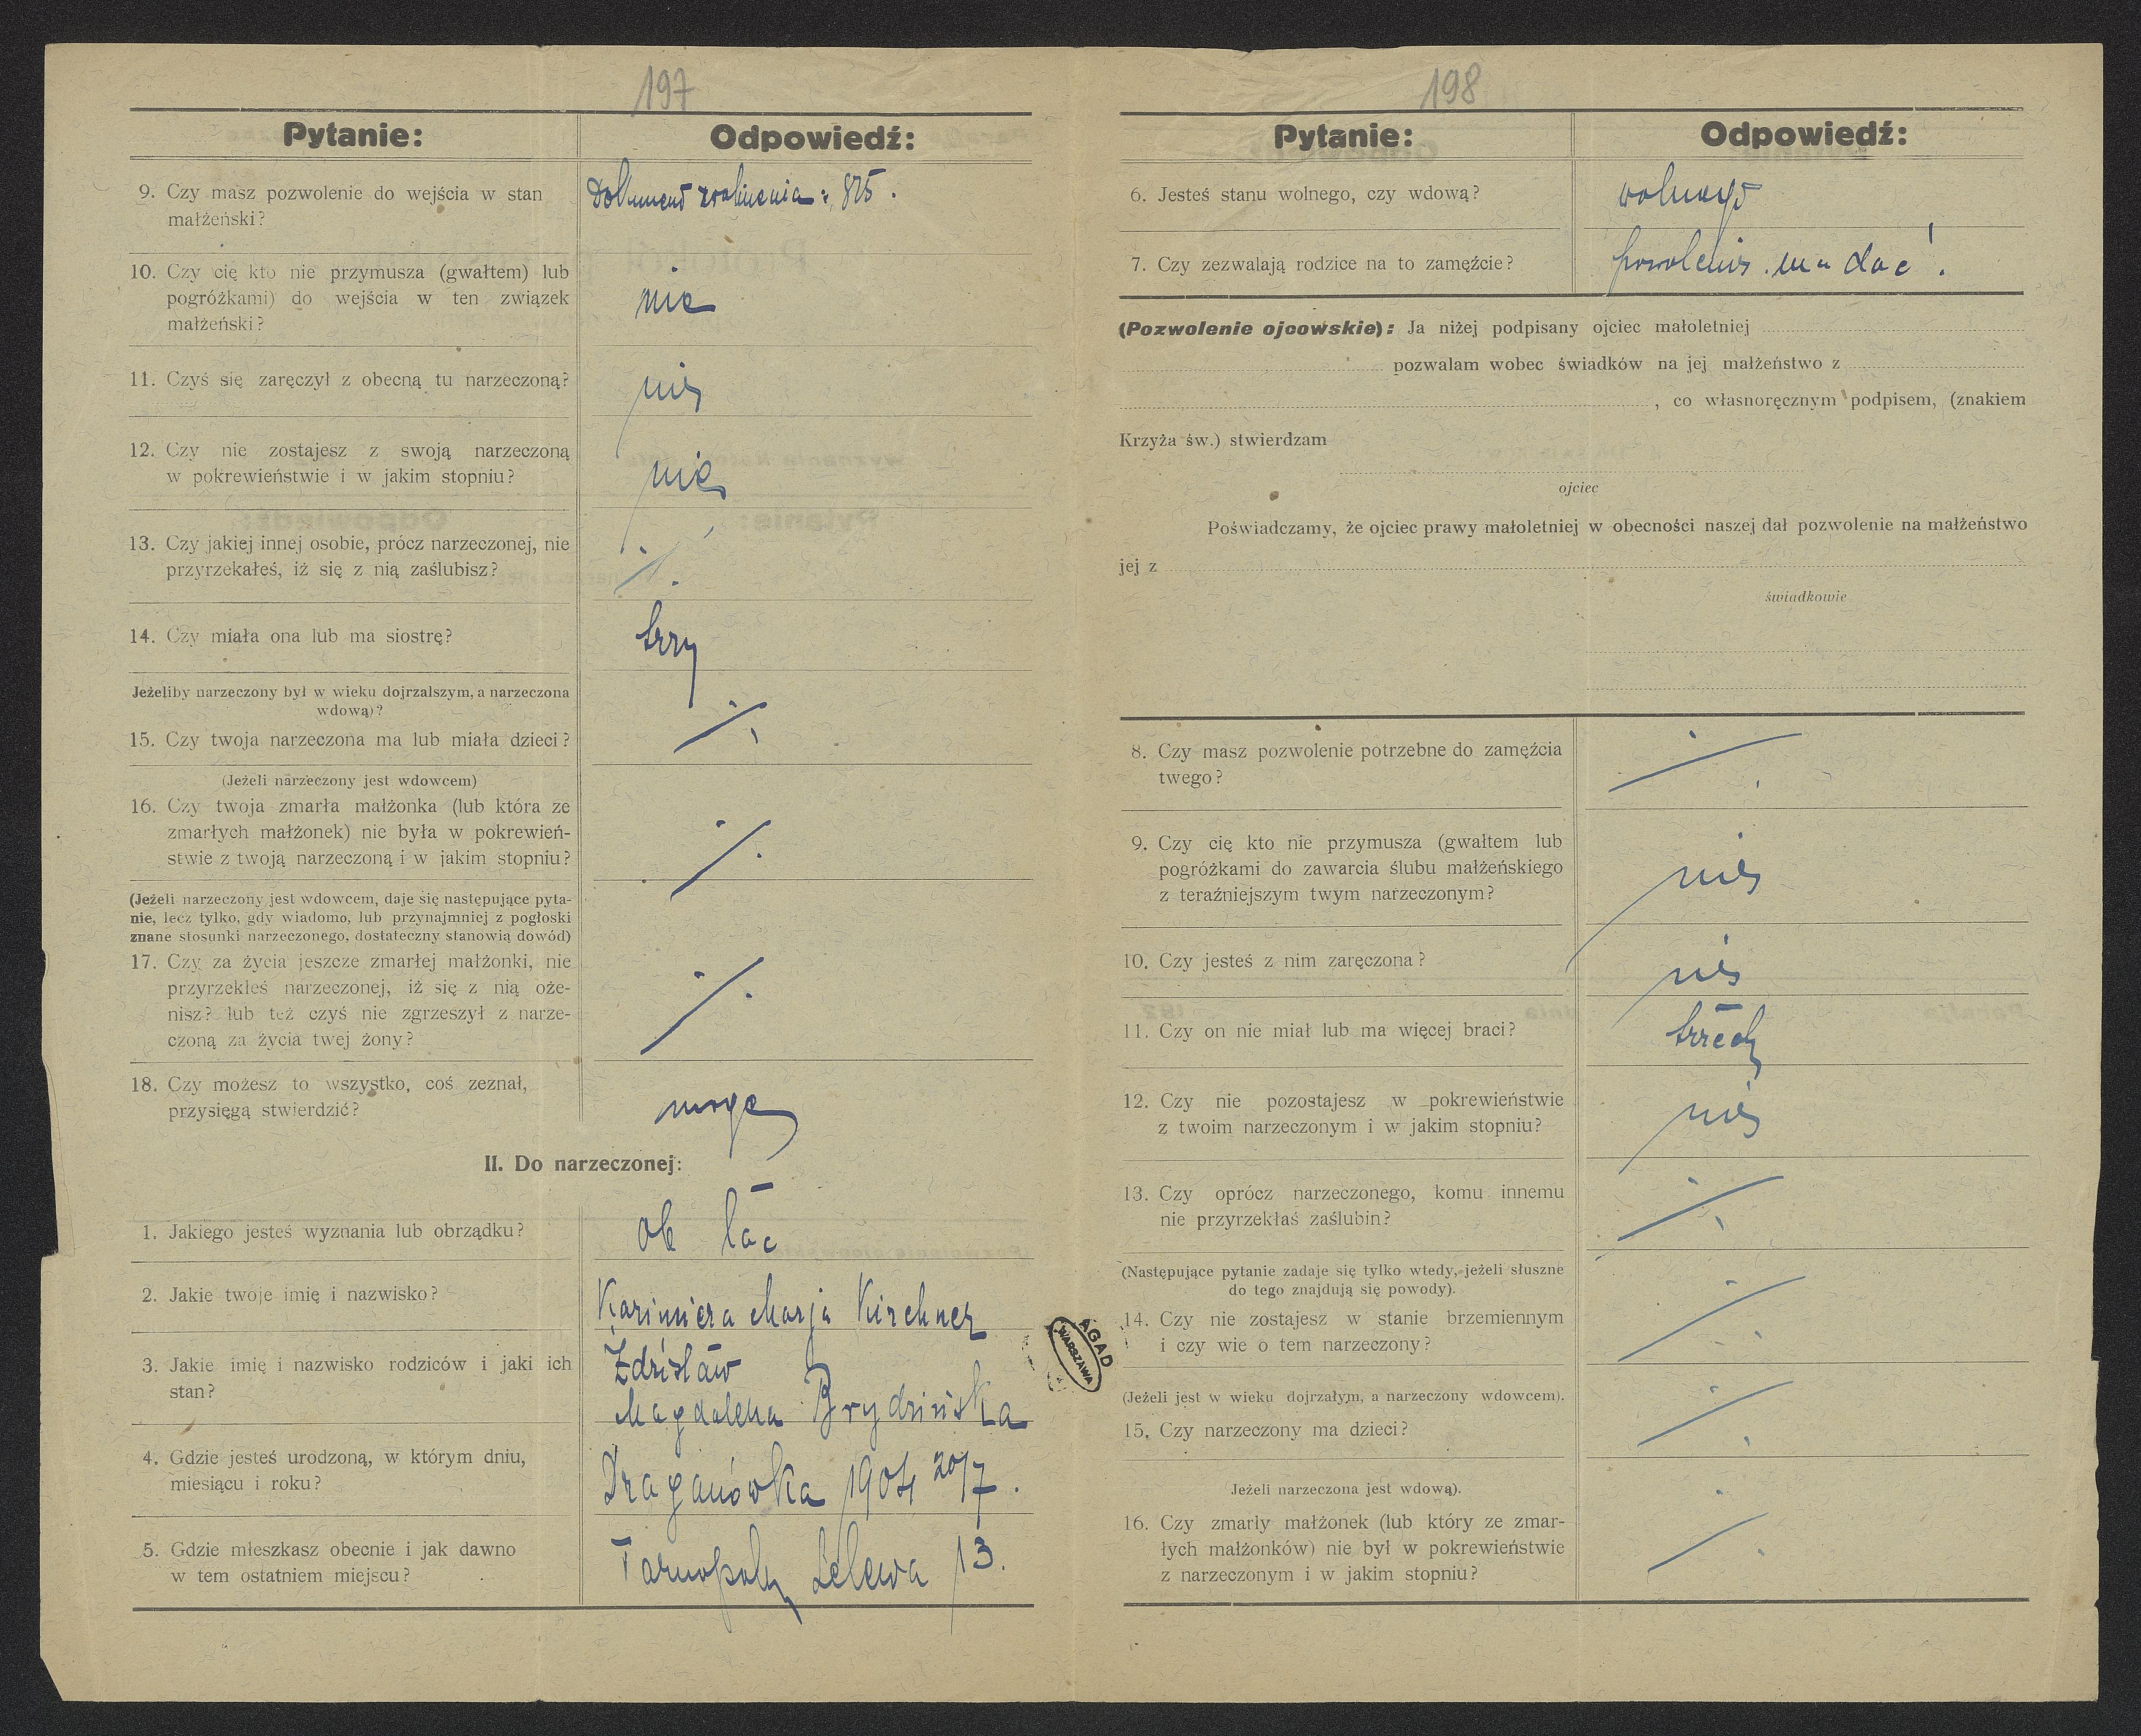 197
Pytanie:
Odpowiedź:
9. Czy masz pozwolenie do wejścia w stan
małżeński?
Dokument zwolnienia: 825.
10. Czy cię kto nie przymusza (gwałtem) lub
pogróżkami) do wejścia w ten związek
małżeński?
nie
11. Czyś się zaręczył z obecną tu narzeczoną?
nie
12. Czy nie zostajesz z swoją narzeczoną
w pokrewieństwie i w jakim stopniu?
nie
13. Czy jakiej innej osobie, prócz narzeczonej, nie
przyrzekałeś, iż się z nią zaślubisz?
14. Czy miała ona lub ma siostrę?
trzy
Jeżeliby narzeczony był w wieku dojrzalszym, a narzeczona
wdową)?
15. Czy twoja narzeczona ma lub miała dzieci?
(Jeżeli narzeczony jest wdowcem)
16. Czy twoja zmarła małżonka (lub która ze
zmarłych małżonek) nie była w pokrewień-
stwie z twoją narzeczoną i w jakim stopniu?
(Jeżeli narzeczony jest wdowcem, daje się następujące pyta-
nie, lecz tylko, gdy wiadomo, lub przynajmniej z pogłoski
znane stosunki narzeczonego, dostateczny stanowią dowód)
17. Czy za życia jeszcze zmarłej małżonki, nie
przyrzekłeś narzeczonej, iż się z nią oże-
nisz? lub też czyś nie zgrzeszył z narze-
czoną za życia twej żony?
18. Czy możesz to wszystko, coś zeznał,
przysięgą stwierdzić?
mogę
II. Do narzeczonej:
1. Jakiego jesteś wyznania lub obrządku?
ob łac
2. Jakie twoje imię i nazwisko?
Kazimiera Marja Kirchner
3. Jakie imię i nazwisko rodziców i jaki ich
stan?
Zdzisław
Magdalena Brydzińska
4. Gdzie jesteś urodzoną, w którym dniu,
miesiącu i roku?
Draganówka 1904 20/7.
5. Gdzie mieszkasz obecnie i jak dawno
w tem ostatniem miejscu?
Tarnopol, 13.
AGAD
WARSZAWA
198
Pytanie:
Odpowiedź:
6. Jesteś stanu wolnego, czy wdową?
wolnego
7. Czy zezwalają rodzice na to zamężcie?
pozwolenie ma dać.
(Pozwolenie ojcowskie): Ja niżej podpisany ojciec małoletniej
pozwalam wobec świadków na jej małżeństwo z
, co własnoręcznym podpisem, (znakiem
Krzyża św.) stwierdzam
ojciec
Poświadczamy, że ojciec prawy małoletniej w obecności naszej dał pozwolenie na małżeństwo
jej z
świadkowie
8. Czy masz pozwolenie potrzebne do zamężcia
twego?
9. Czy cię kto nie przymusza (gwałtem lub
pogróżkami do zawarcia ślubu małżeńskiego
z teraźniejszym twym narzeczonym?
nie
10. Czy jesteś z nim zaręczona?
nie
11. Czy on nie miał lub ma więcej braci?
trzech
12. Czy nie pozostajesz w pokrewieństwie
z twoim narzeczonym i w jakim stopniu?
nie
13. Czy oprócz narzeczonego, komu innemu
nie przyrzekłaś zaślubin?
(Następujące pytanie zadaje się tylko wtedy, jeżeli słuszne
do tego znajdują się powody).
14. Czy nie zostajesz w stanie brzemiennym
i czy wie o tem narzeczony?
(Jeżeli jest w wieku dojrzałym, a narzeczony wdowcem).
15. Czy narzeczony ma dzieci?
Jeżeli narzeczona jest wdową).
16. Czy zmarły małżonek (lub który ze zmar-
łych małżonków) nie był w pokrewieństwie
z narzeczonym i w jakim stopniu?